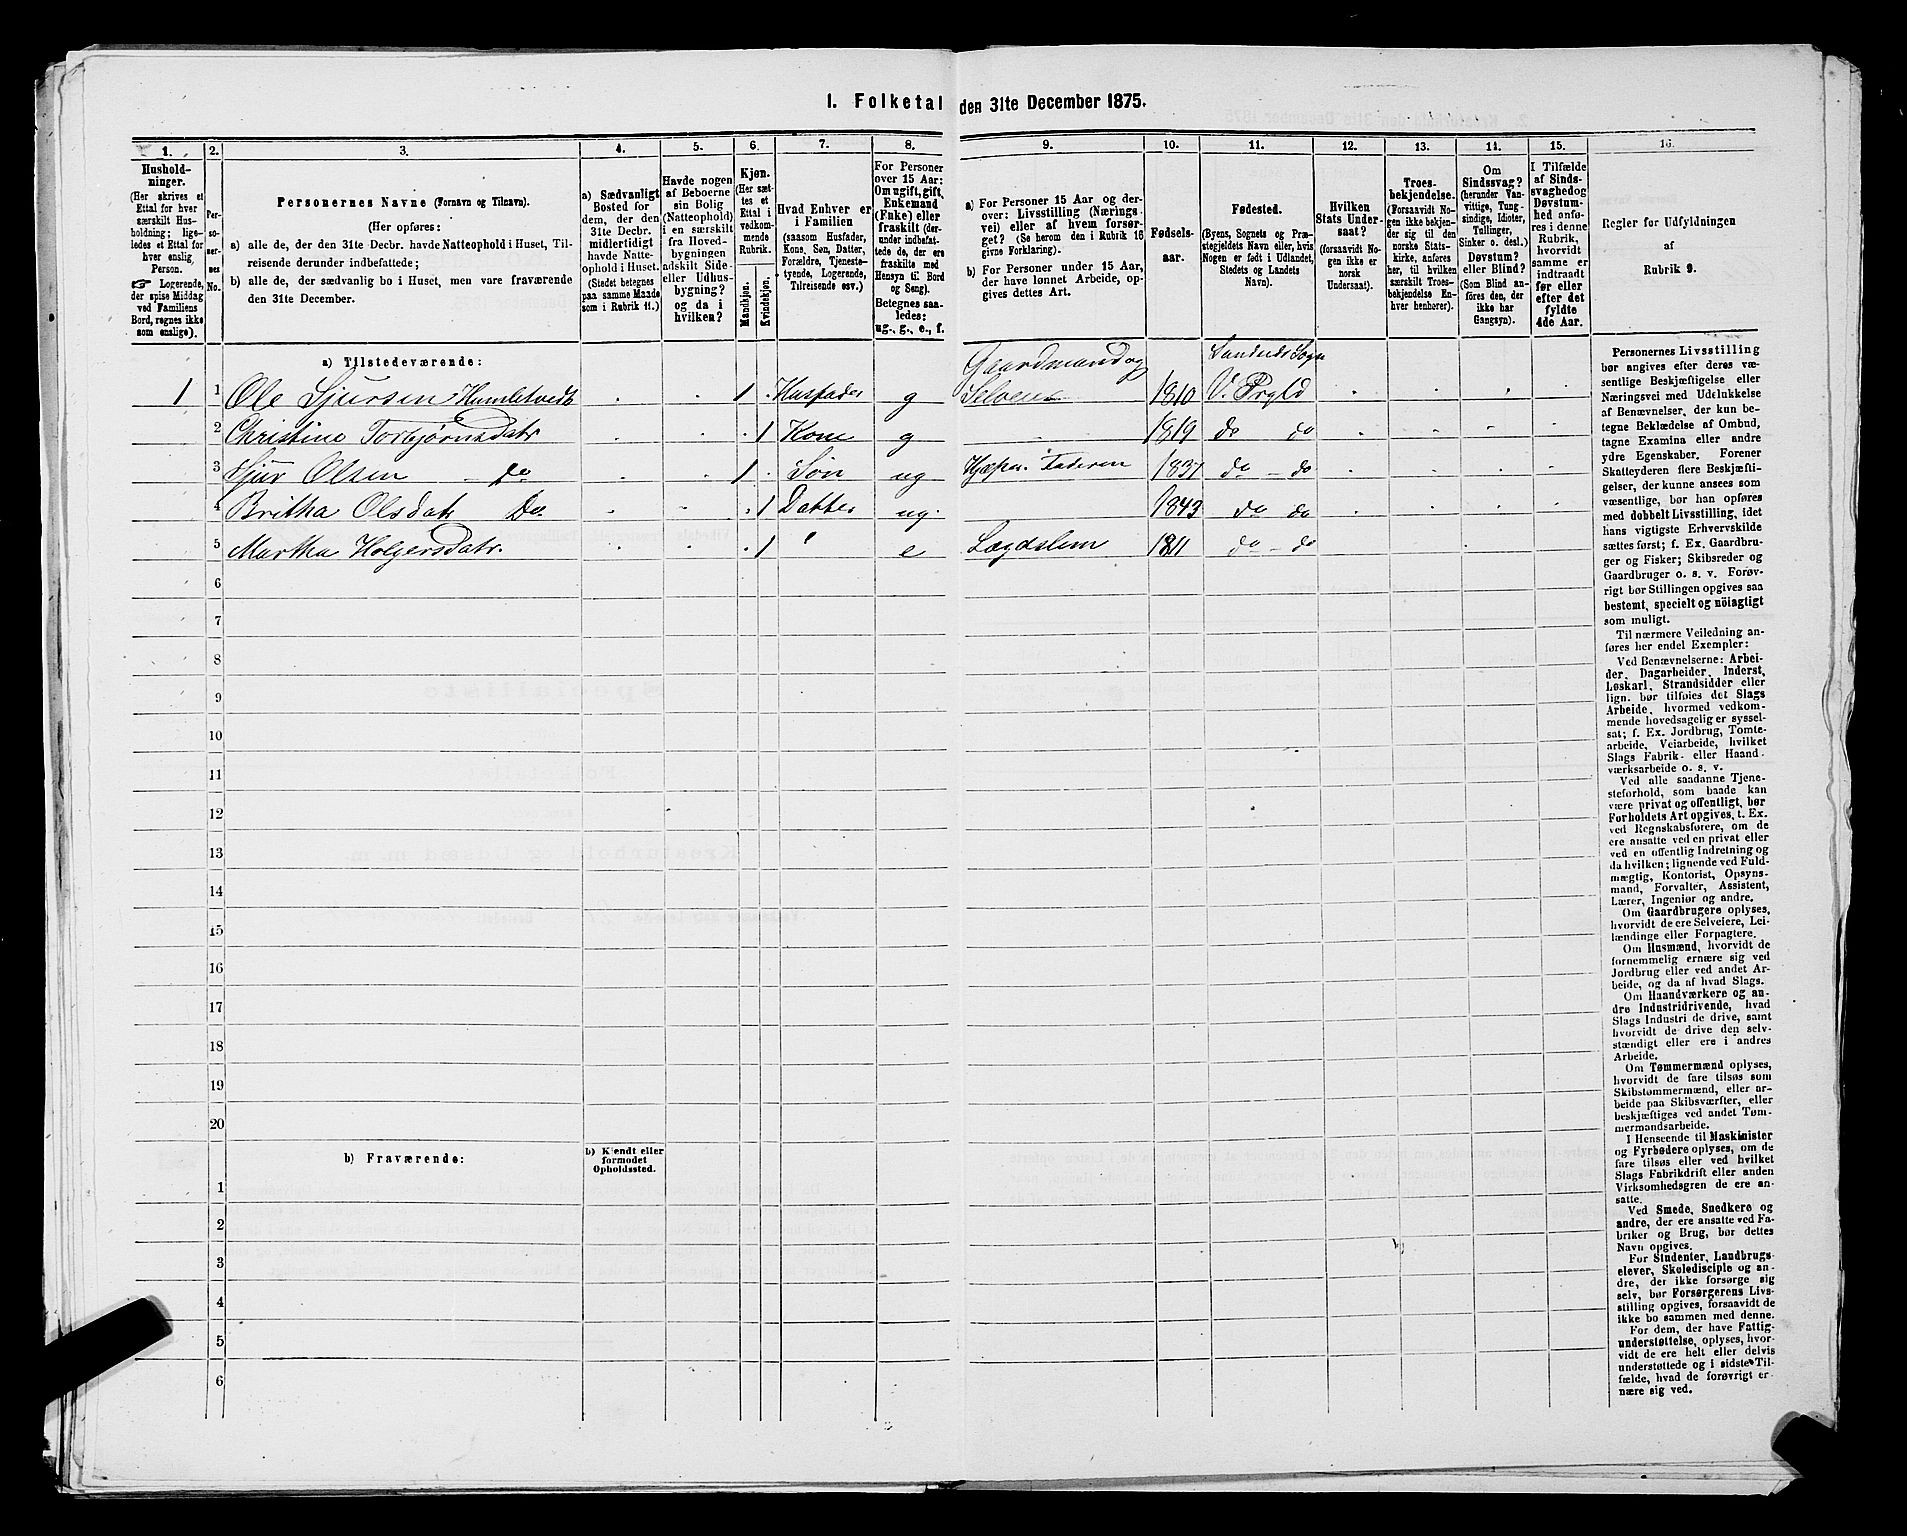 I. Folketal den 31te December 1875.
1. 2. 3. 4. 5. 6. 7. 8. 9. 10. 11. 12. 13. 14. 15. 16.
Hushold-
ninger.
(Her skrives et
Ettal for hver
særskilt Hus-
holdning; lige-
ledes et Ettal for
hver enslig
Person.
☞ Logerende,
der spise Middag
ved Familiens
Bord, regnes ikke
som enslige).
Per-
so-
ner-
nes
No.
Personernes Navne (Fornavn og Tilnavn).
(Her opføres:
a) alle de, der den 31te Decbr. havde Natteophold i Huset, Til-
reisende derunder indbefattede;
b) alle de, der sædvanlig bo i Huset, men vare fraværende
den 31te December.
a) Sædvanligt
Bosted for
dem, der den
31te Decbr.
midlertidigt
havde Natte-
ophold i Huset.
(Stedet betegnes
paa samme Maade
som i Rubrik 11.)
Havde nogen
af Beboerne
sin Bolig
(Natteophold)
i en særskilt
fra Hoved-
bygningen
adskilt Side-
eller Udhus-
bygning?
og da i
hvilken?
Kjøn.
(Her sæt-
tes et
Ettal i
vedkom-
mende
Rubrik.
Mandkjøn.
Kvindekjøn.
Hvad Enhver er
i Familien
(saasom Husfader,
Kone, Søn, Datter,
Forældre, Tjeneste-
tyende, Logerende,
Tilreisende osv.)
For Personer
over 15 Aar:
Om ugift, gift,
Enkemand
(Enke) eller
fraskilt (der-
under indbefat-
tede de, der ere
fraskilte med
Hensyn til Bord
og Seng).
Betegnes saa-
ledes:
ug., g., e., f.
a) For Personer 15 Aar og der-
over: Livsstilling (Nærings-
vei) eller af hvem forsør-
get? (Se herom den i Rubrik 16
givne Forklaring).
b) For Personer under 15 Aar,
der have lønnet Arbeide, op-
gives dettes Art.
Fødsels-
aar.
Fødested.
(Byens, Sognets og Præ-
stegjeldets Navn eller, hvis
Nogen er født i Udlandet,
Stedets og Landets
Navn).
Hvilken
Stats Under-
saat?
(forsaavidt No-
gen ikke er
norsk
Undersaat).
Troes-
bekjendelse.
(Forsaavidt No-
gen ikke bekjen-
der sig til den
norske Stats-
kirke, anføres
her, til hvilken
særskilt Troes-
bekjendelse En-
hver henhorer).
Om
Sindssvag?
(herunder Van-
vittige, Tung-
sindige, Idioter,
Tullinger,
Sinker o. desl.)
Døvstum?
eller Blind?
(Som Blind an-
føres den, der
ikke har
Gangsyn).
I Tilfælde
af Sinds-
svaghed og
Døvstum-
hed anfø-
res i denne
Rubrik,
hvorvidt
samme er
indtraadt
før eller
efter det
fyldte
4de Aar.
Regler for Udfyldningen
af
Rubrik 9.
a) Tilstedeværende:
Gaardmand og Sandeids Sogn
1 1 Ole Sjursen Humletvedt 1 Husfader g Selveier 1810 V. Prgld
2 Christine Torbjørnsdatr 1 Kone g 1819 do do
3 Sjur Olsen do 1 Søn ug Hjelper Faderen 1837 do do
4 Britha Olsdatr Do. 1 Datter ug. 1843 do do
5 Martha Holgersdatr. 1 " e Lægdslem 1811 do do
6
7
8
9
10
11
12
13
14
15
16
17
18
19
20
b) Fraværende:
b) Kjendt eller
formodet
Opholdssted.
1
2
3
4
5
6
Personernes Livsstilling
bør angives efter deres væ-
sentlige Beskjæftigelse eller
Næringsvei med Udelukkelse
af Benævnelser, der kun be-
tegne Beklædelse af Ombud,
tagne Examina eller andre
ydre Egenskaber. Forener
Skatteyderen flere Beskjæfti-
gelser, der kunne ansees som
væsentlige, bør han opføres
med dobbelt Livsstilling, idet
hans vigtigste Erhvervskilde
sættes først; f. Ex. Gaardbru-
ger og Fisker; Skibsreder og
Gaardbruger o. s. v. Forøv-
rigt bør Stillingen opgives saa
bestemt, specielt og nöiagtigt
som muligt.
Til nærmere Veiledning an-
føres her endel Exempler:
Ved Benævnelserne: Arbei-
der, Dagarbeider, Inderst,
Løskarl, Strandsidder eller
lign. bør tilføies det Slags
Arbeide, hvormed vedkom-
mende hovedsagelig er syssel-
sat; f. Ex. Jordbrug, Tomte-
arbeide, Veiarbeide, hvilket
Slags Fabrik- eller Haand-
værksarbeide o. s. v.
Ved alle saadanne Tjene-
steforhold, som baade kan
være privat og offentligt, bør
Forholdets Art opgives, t. Ex.
ved Regnskabsførere, om de
ere ansatte ved en privat eller
ved en offentlig Indretning og
da hvilken; lignende ved Fuld-
mægtig, Kontorist, Opsyns-
mand, Forvalter, Assistent,
Lærer, Ingeniør og andre.
Om Gaardbrugere oplyses,
hvorvidt de ere Selveiere, Lei-
lændinge eller Forpagtere.
Om Husmænd, hvorvidt de
fornemmelig ernære sig ved
Jordbrug eller ved andet Ar-
beide, og da af hvad Slags.
Om Haandværkere og an-
dre Industridrivende, hvad
Slags Industri de drive, samt
hvorvidt de drive den selv-
stændigt eller ere i andres
Arbeide.
Om Tømmermænd oplyses,
hvorvidt de fare tilsøs som
Skibstømmermænd, eller ar-
beide paa Skibsværfter, eller
beskjæftiges ved andet Tøm-
mermandsarbeide.
I Henseende til Maskinister
og Fyrbødere oplyses, om de
fare tilsøs eller ved hvilket
Slags Fabrikdrift eller anden
Virksomhedsgren de ere an-
satte.
Ved Smede, Snedkere og
andre, der ere ansatte ved Fa-
briker og Brug, bør dettes
Navn opgives.
For Studenter, Landbrugs-
elever, Skoledisciple og an-
dre, der ikke forsørge sig
selv, bør Forsørgerens Livs-
stilling opgives, forsaavidt de
ikke bo sammen med denne.
For dem, der have Fattig-
understøttelse, oplyses, hvor-
vidt de ere helt eller delvis
understøttede og i sidste Til-
fælde, hvad de forøvrigt er-
nære sig ved.